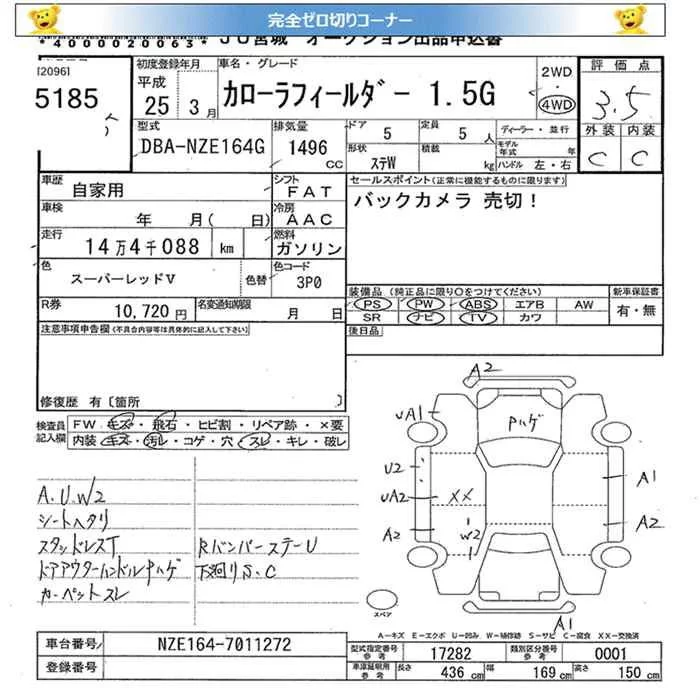 完全ゼロ切りコーナー
*4000020063* JU宮城 オークション出品申込書
[2096]
5185
初度登録年月
平成
25 3月
車名・グレード
カローラフィールダー 1.5G
2WD
・
4WD
評価点
3.5
外装 内装
C C
型式
DBA-NZE164G
排気量
1496
CC
ドア 5
定員 5 人
ディーラー・並行
形状 ステW
積載 kg
モデル年式 年
ハンドル 左・右
車歴 自家用
シフト FAT
セールスポイント(正常に機能するものに限ります)
バックカメラ 売切!
車検 年 月( 日)
冷房 AAC
走行 14万4千088 km
燃料 ガソリン
色 スーパーレッドV
色替
色コード 3P0
装備品(純正品に限り○をつけてください)
新車保証書
PS PW ABS エアB AW
有・無
SR ナビ TV カワ
R券 10,720円
名変通知期限 月 日
後日品
注意事項申告欄(不具合内容等は具体的に記入して下さい)
修復歴 有[箇所 ]
検査員記入欄
FW キズ・飛石・ヒビ割・リペア跡・×要
内装 キズ・汚レ・コゲ・穴・スレ・キレ・破レ
A.U.W2
シートヘタリ
スタッドレスT
ドアアウターハンドルPハゲ
カーペットスレ
RバンパーステーU
下廻りS.C
A2
UA1
Pハゲ
U2
UA2
XX
A1
A2
W2
A2
A1
スペア
A-キズ E-エクボ U-凹み W-補修跡 S-サビ C-腐食 XX-交換済
車台番号 NZE164-7011272
登録番号
型式指定番号 参考 17282
類別区分番号 参考 0001
車庫証明用 参考 長さ 436 cm 幅 169 cm 高さ 150 cm